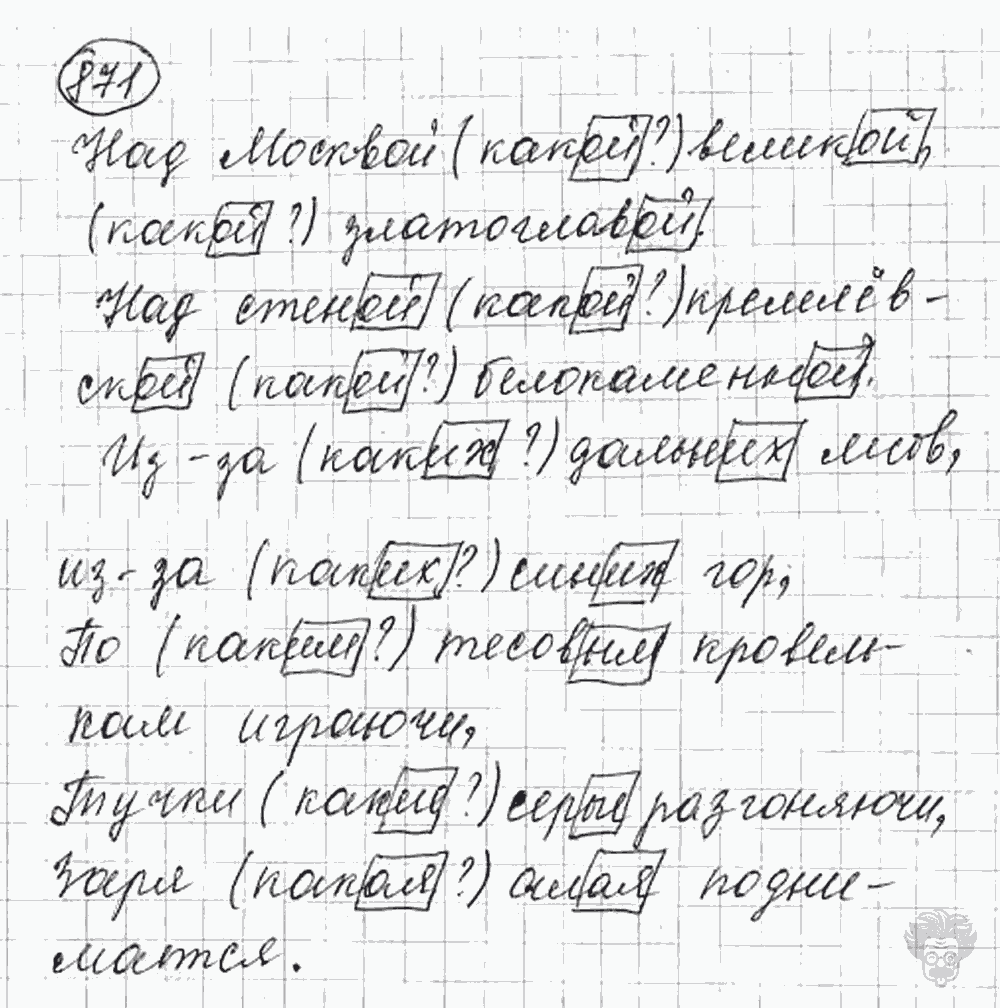 871
Над Москвой (какой?) великой,
(какой?) златоглавой.
Над стеной (какой?) кремлёв-
ской (какой?) белокаменной.
Из-за (каких?) дальних лесов,
из-за (каких?) синих гор,
По (каким?) тесовым кровель-
кам играючи,
Тучки (какие?) серые разгоняючи,
Заря (какая?) алая подни-
мается.